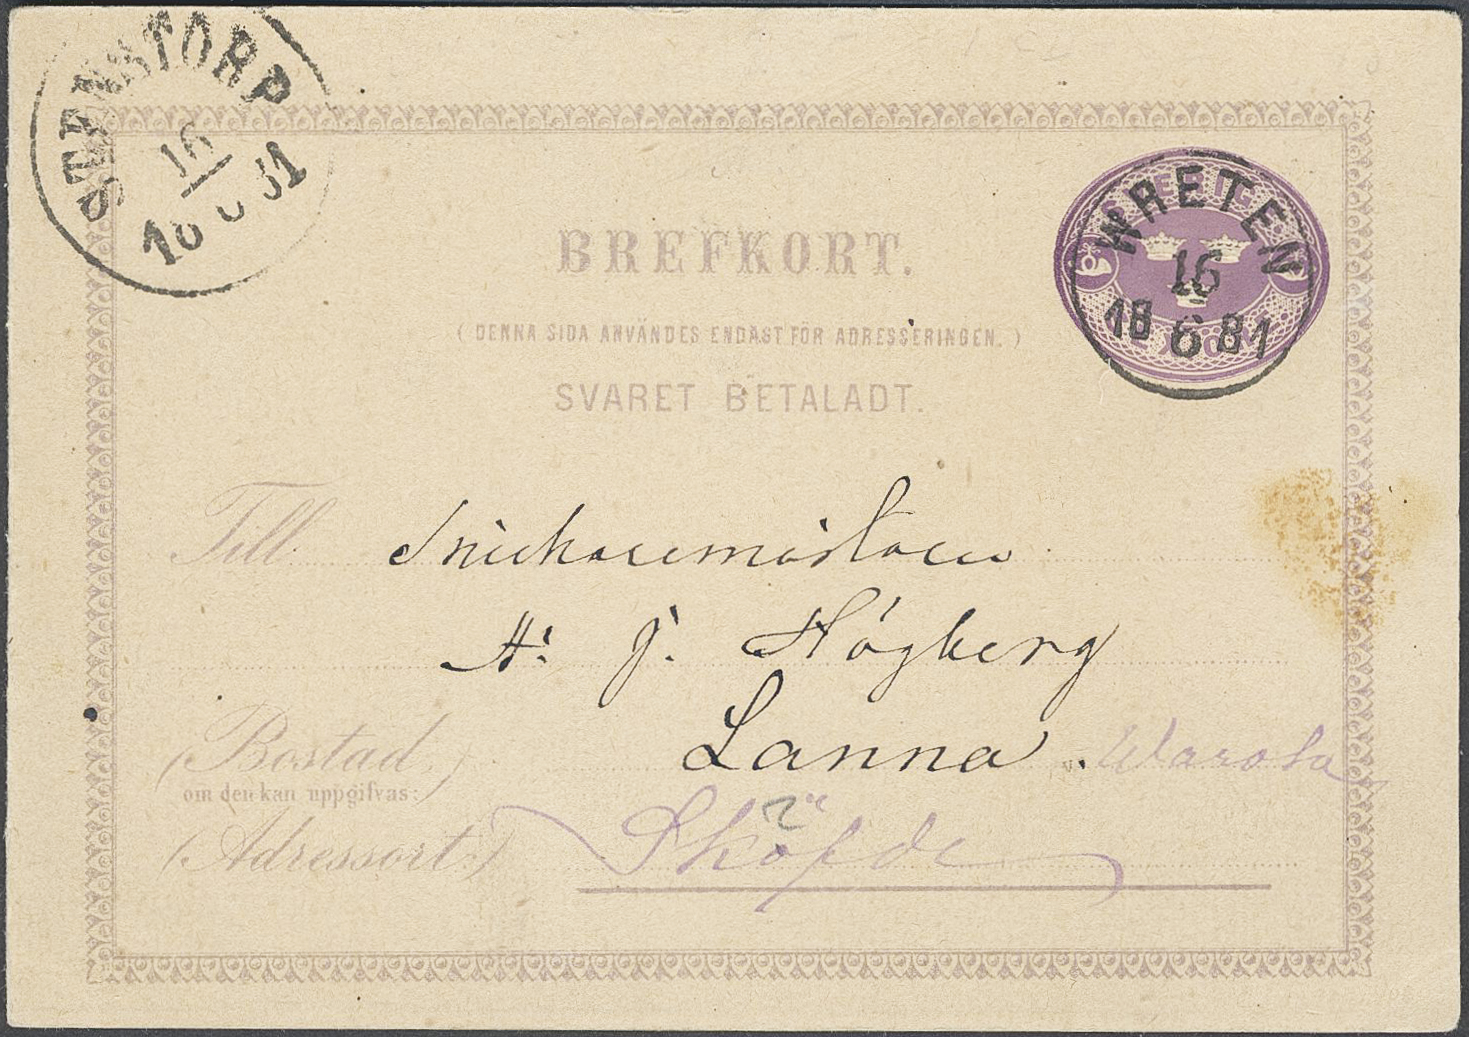 STENSTORP
16
18 6 81
SVERIGE
WRETEN
16
18 6 81
BREFKORT.
(DENNA SIDA ANVÄNDES ENDAST FÖR ADRESSERINGEN.)
SVARET BETALADT.
Till Snickaremästaren
A. J. Högberg
(Bostad Lanna. Warola
om den kan uppgifvas:)
(Adressort:) Sköfde
2